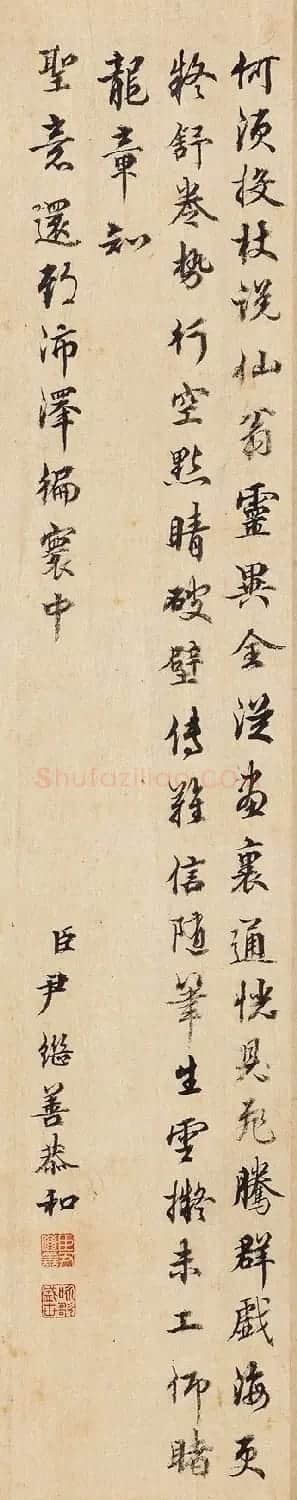 何須投杖說仙翁靈異全從畫裏通恍見飛騰群戲海更
疑舒卷勢行空點睛破壁傳難信隨筆生雲擬未工仰睹
龍章知
聖意還教沛澤徧寰中
臣尹繼善恭和
Shufaziliao.com